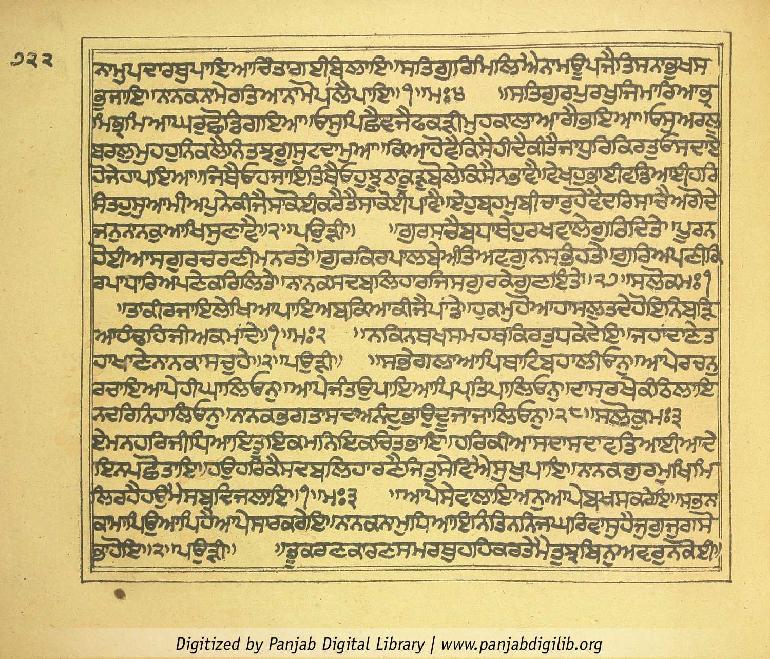 ੭੨੨
ਨਾਮੁਪਦਾਰਥੁਪਾਇਆਚਿੰਤਾਗਈਬਿਲਾਇ॥ਸਤਿਗੁਰਿਮਿਲਿਐਨਾਮਊਪਜੈਤਿਸਨਾਭੁਖਸ
ਭਜਾਇ॥ਨਾਨਕਨਾਮੇਰਤਿਆਨਾਮੋਪਲੈਪਾਇ॥੧॥ਮਃ੪ ॥ਸਤਿਗੁਰਪੁਰਖੁਜਿਮਾਰਿਆਭ੍ਰ
ਮਿਭ੍ਰਮਿਆਘਰੁਛੋਡਿਗਇਆ॥ਓਸੁਪਿਛੈਵਜੈਫਕੜੀਮੁਹਕਾਲਾਆਗੈਭਇਆ॥ਓਸੁਅਰਲੁ
ਬਰਲੁਮੁਹਹੁਨਿਕਲੈਨਿਤਝਗੂਸੁਟਦਾਮੁਆ॥ਕਿਆਹੋਵੈਕਿਸੈਹੀਦੈਕੀਤੈਜਾਧੁਰਿਕਿਰਤੁਓਸਦਾਏ
ਹੋਜੇਹਾਪਇਆ॥ਜਿਥੈਓਹੁਜਾਇਤਿਥੈਓਹੁਝੂਠਾਕੂੜੁਬੋਲੇਕਿਸੈਨਭਾਵੈ॥ਵੇਖਹੁਭਾਈਵਡਿਆਈਹਰਿ
ਸੰਤਹੁਸੁਆਮੀਅਪੁਨੇਕੀਜੈਸਾਕੋਈਕਰੈਤੈਸਾਕੋਈਪਾਵੈ॥ਏਹੁਬ੍ਰਹਮਬੀਚਾਰੁਹੋਵੈਦਰਿਸਾਚੈਅਗੋਦੇ
ਜਨਨਾਨਕੁਆਖਿਸੁਣਾਵੈ॥੨॥ਪਉੜੀ॥ ਗੁਰਸਚੈਬਧਾਥੇਹੁਰਖਵਾਲੇਗੁਰਿਦਿਤੇ॥ਪੂਰਨ
ਹੋਈਆਸਗੁਰਚਰਣੀਮਨਰਤੇ॥ਗੁਰਿਕਿਰਪਾਲਬੇਅੰਤਿਅਵਗੁਣਸਭਿਹਤੇ॥ਗੁਰਿਅਪਣੀਕਿ
ਰਪਾਧਾਰਿਅਪਣੇਕਰਿਲਿਤੇ॥ਨਾਨਕਸਦਬਲਿਹਾਰਜਿਸਗੁਰਕੇਗੁਣਇਤੇ॥੨੭॥ਸਲੋਕਮਃ੧
॥ਤਾਕੀਰਜਾਇਲੇਖਿਆਪਾਇਅਬਕਿਆਕੀਜੈਪਾਂਡੇ॥ਹੁਕਮੁਹੋਆਹਾਸਲੁਤਦੇਹੋਇਨਿਬੜਿ
ਆਹੰਢਹਿਜੀਅਕਮਾਂਦੇ॥੧॥ਮਃ੨ ॥ਨਕਿਨਥਖਸਮਹਥਕਿਰਤੁਧਕੇਦੇਇ॥ਜਹਾਂਦਾਣੇਤ
ਹਾਂਖਾਣੇਨਾਨਕਾਸਚੁਹੇ॥੨॥ਪਉੜੀ॥ ॥ਸਭੇਗਲਾਆਪਿਥਾਟਿਬਹਾਲੀਓਨੁ॥ਆਪੇਰਚਨੁ
ਰਚਾਇਆਪੇਹੀਘਾਲਿਓਨੁ॥ਆਪੇਜੰਤਉਪਾਇਆਪਿਪ੍ਰਤਿਪਾਲਿਓਨੁ॥ਦਾਸਰਖੇਕੰਠਿਲਾਇ
ਨਦਰਿਨਿਹਾਲਿਓਨੁ॥ਨਾਨਕਭਗਤਾਸਦਾਅਨੰਦੁਭਾਉਦੂਜਾਜਾਲਿਓਨੁ॥੨੮॥ਸਲੋਕੁਮਃ੩
ਏਮਨਹਰਿਜੀਧਿਆਇਤੂਇਕਮਨਿਇਕਚਿਤਭਾਇ॥ਹਰਿਕੀਆਸਦਾਸਦਾਵਡਿਆਈਆਦੇ
ਇਨਪਛੋਤਾਇ॥ਹਉਹਰਿਕੈਸਦਬਲਿਹਾਰਣੈਜਿਤੁਸੇਵਿਐਸੁਖੁਪਾਇ॥ਨਾਨਕਗੁਰਮੁਖਿਮਿ
ਲਿਰਹੈਹਉਮੈਸਬਦਿਜਲਾਇ॥੧॥ਮਃ੩ ॥ਆਪੇਸੇਵਾਲਾਇਅਨੁਆਪੇਬਖਸਕਰੇਇ॥ਸਭਨਾ
ਕਾਮਾਪਿਉਆਪਿਹੈਆਪੇਸਾਰਕਰੇਇ॥ਨਾਨਕਨਾਮੁਧਿਆਇਨਿਤਿਨਨਿਜਘਰਿਵਾਸੁਹੈਜੁਗੁਜੁਗੁਸੋ
ਭਾਹੋਇ॥੨॥ਪਉੜੀ॥ ॥ਤੂਕਰਣਕਾਰਣਸਮਰਥੁਹਹਿਕਰਤੇਮੈਤੁਝਬਿਨੁਅਵਰੁਨਕੋਈ॥
Digitized by Panjab Digital Library | www.panjabdigilib.org